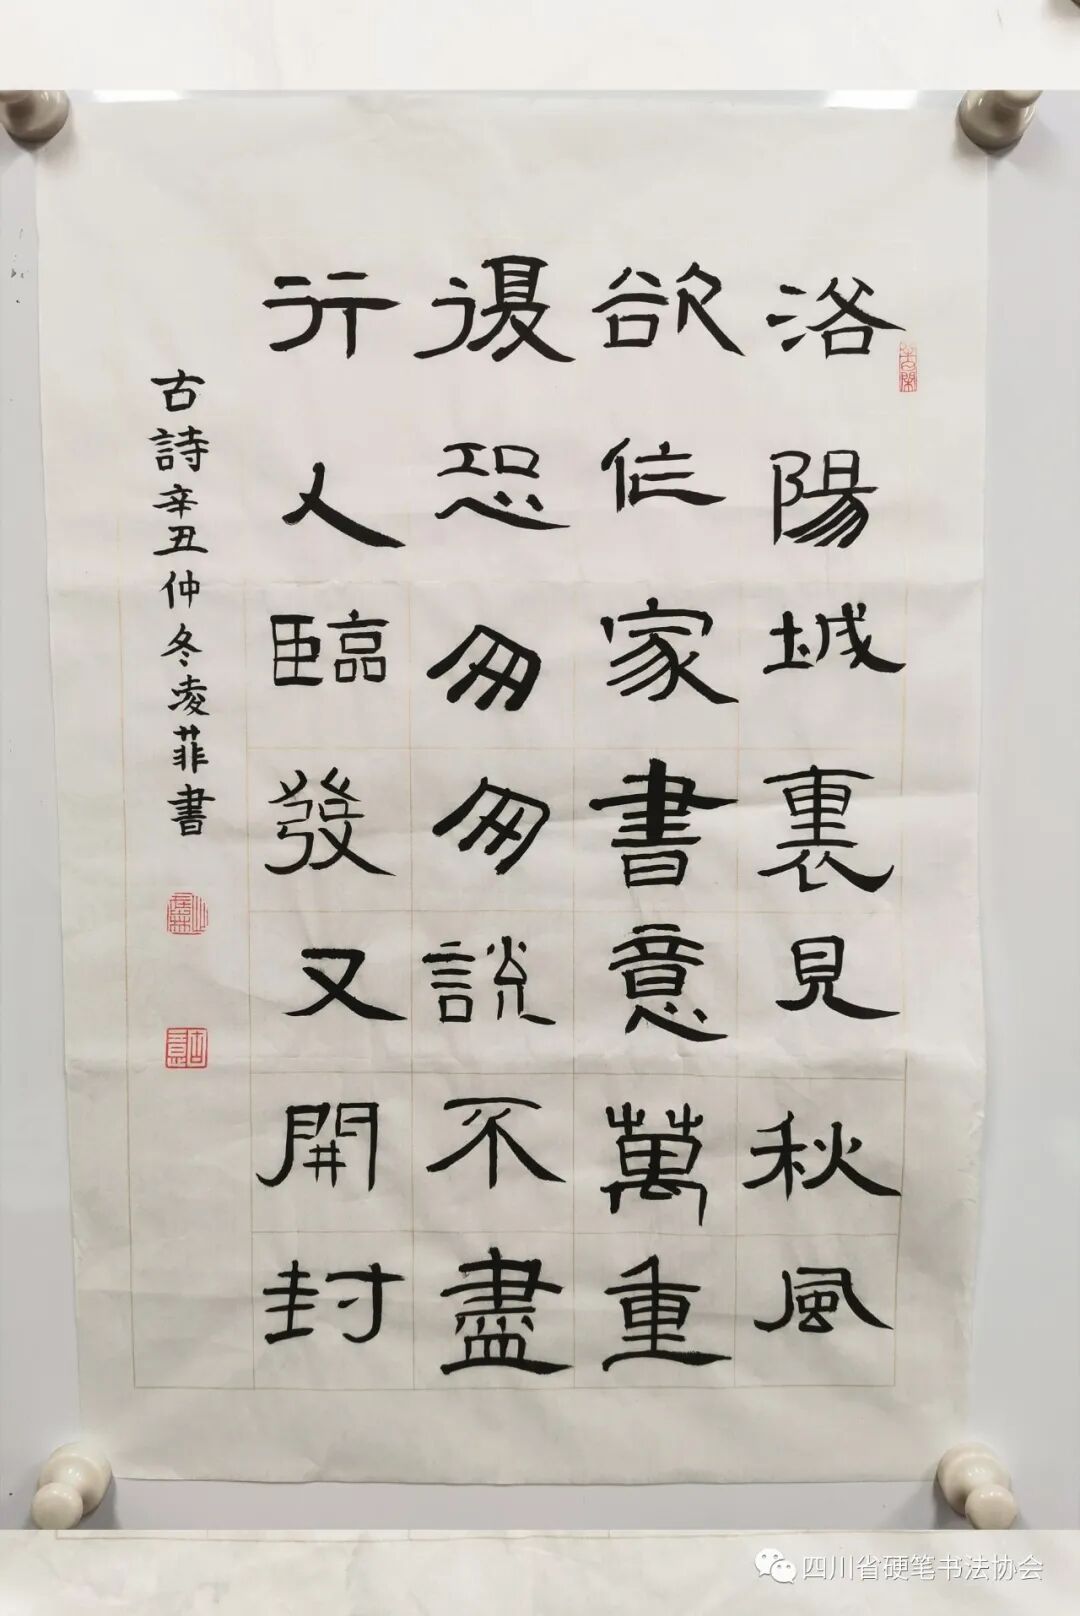 洛陽城裏見秋風
欲作家書意萬重
復恐匆匆説不盡
行人臨發又開封
古詩辛丑仲冬凌菲書
四川省硬笔书法协会